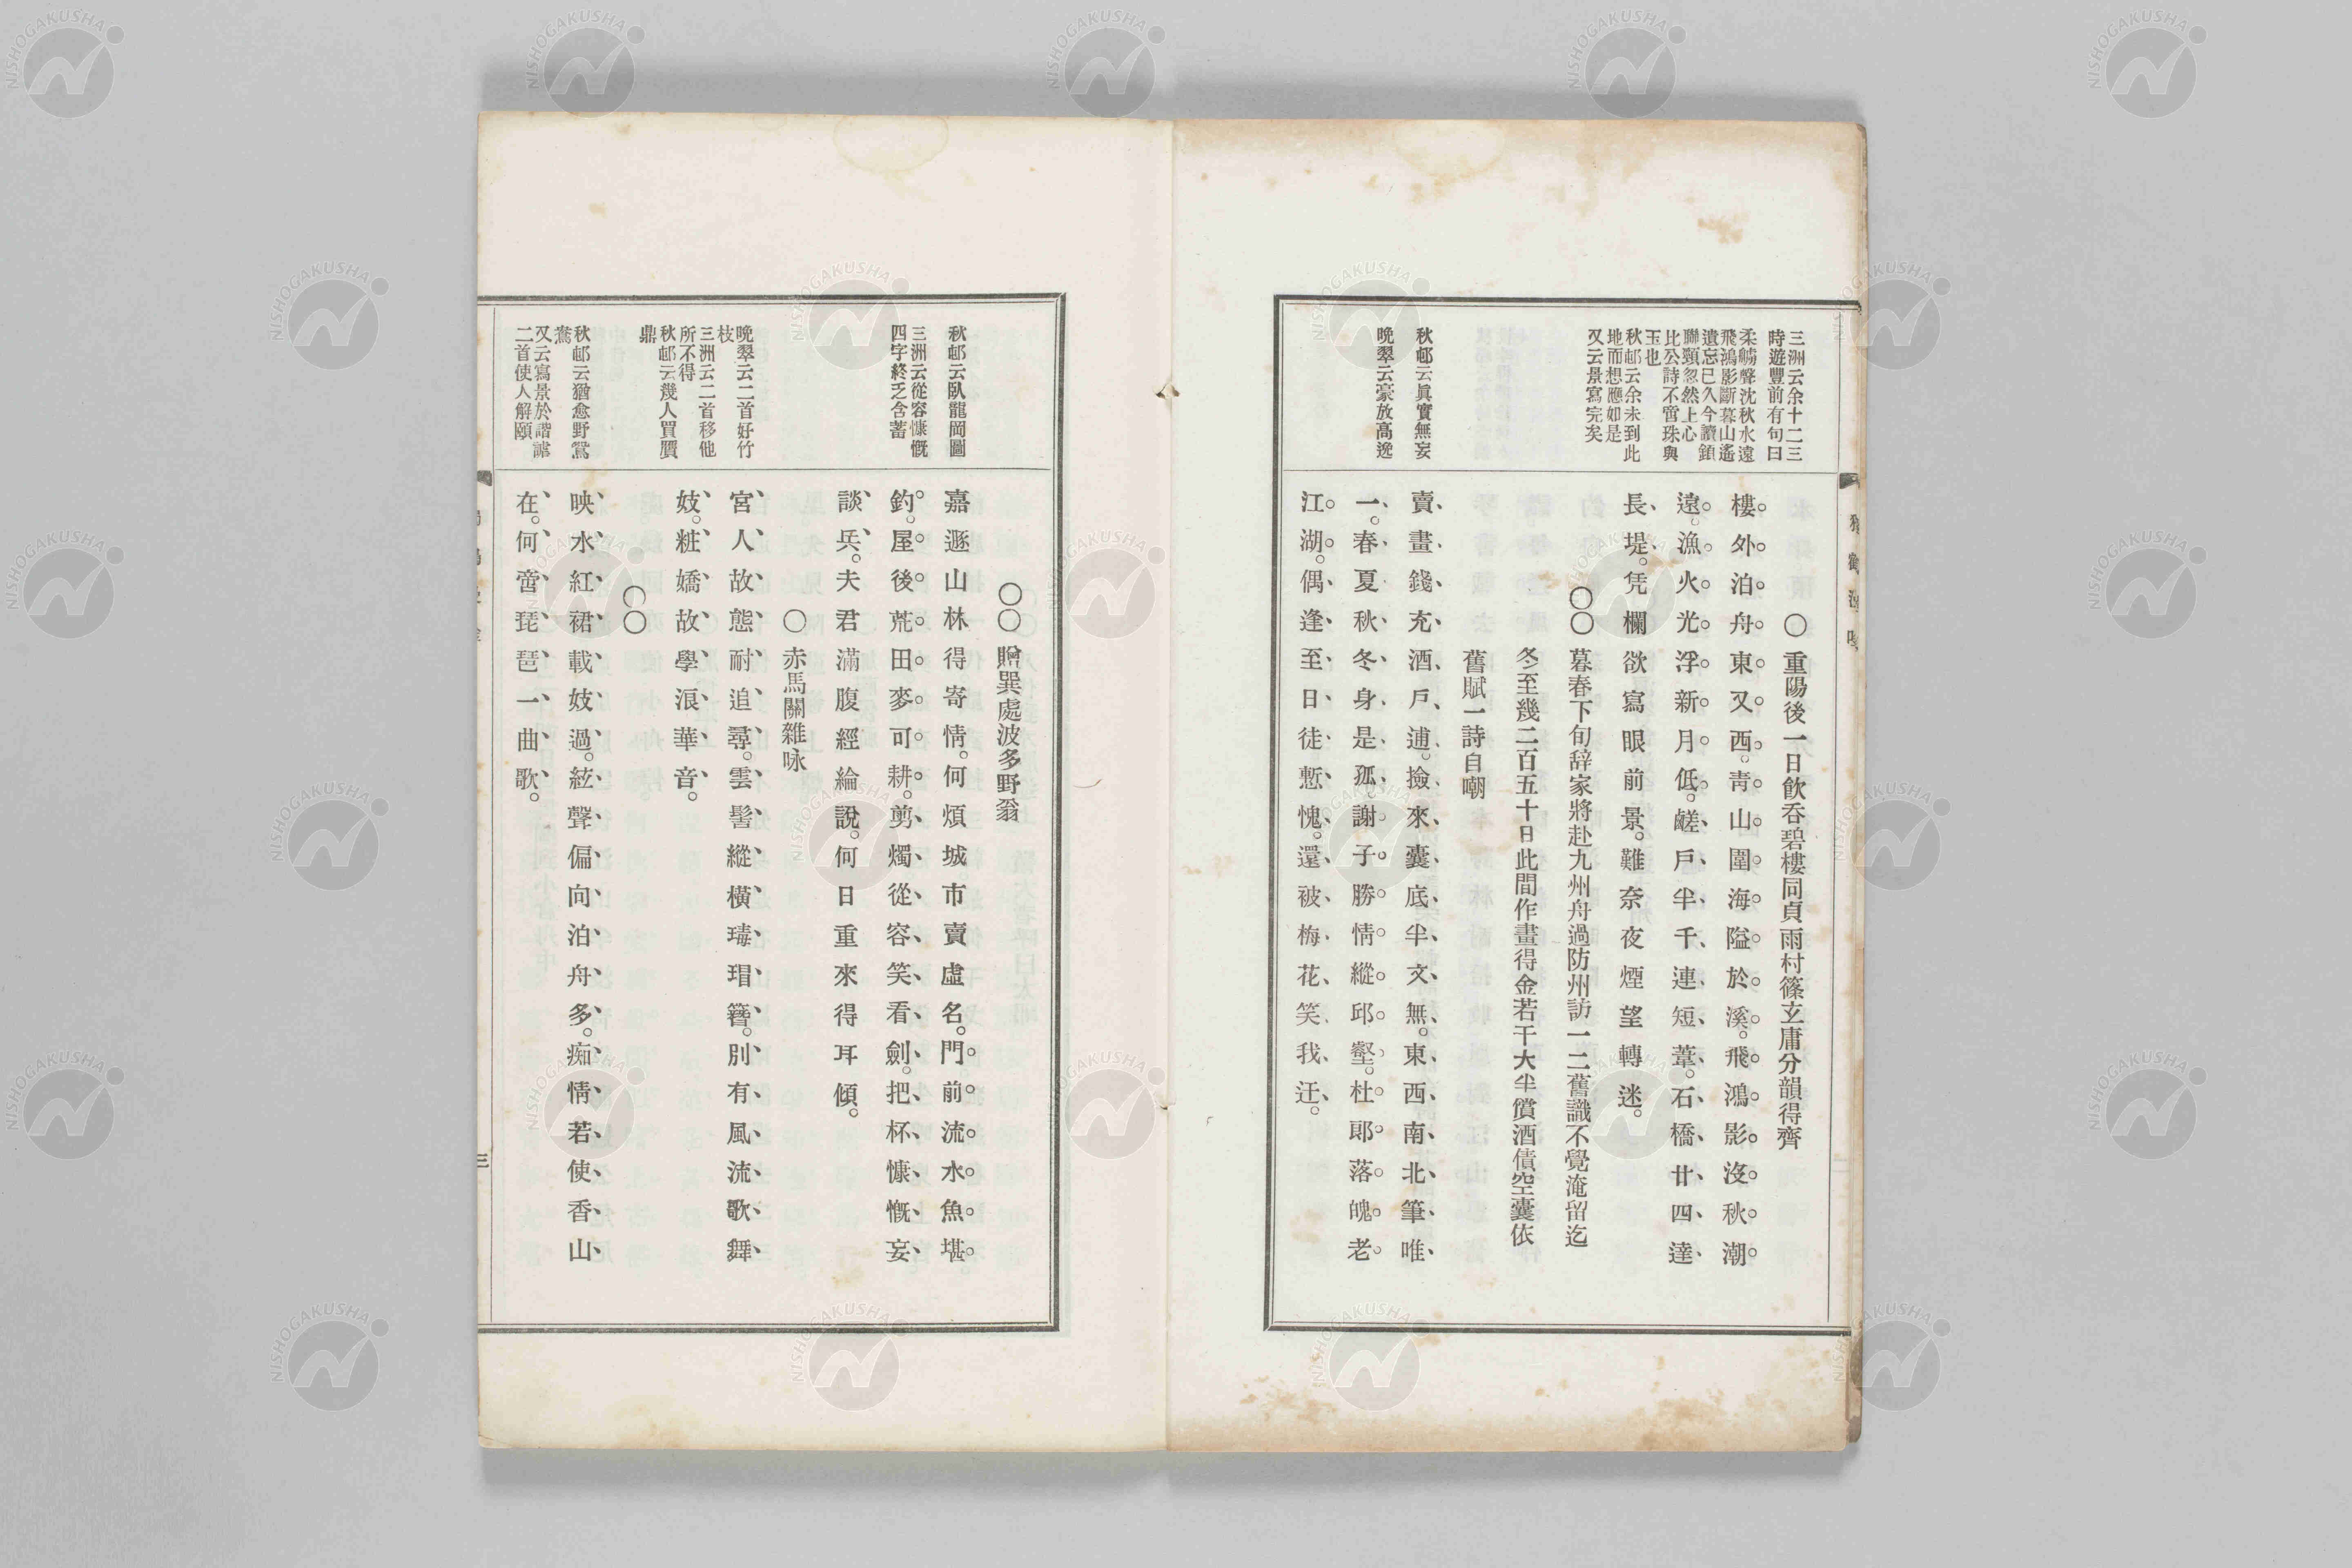 三洲云余十二三
時遊豐前有句曰
柔艣聲沈秋水遠
飛鴻影斷暮山遙
遺忘已久今讀鎖
聯顥忽然上心
比公詩不啻珠與
玉也
秋邨云余未到此
地而想應如是
又云景寫完矣
秋邨云眞實無妄
晩翠云豪放高逸
○重陽後一日飮呑碧樓同貞雨村篠玄庸分韻得齊
樓外泊舟東又西。靑山圍海隘於溪。飛鴻影沒秋潮
遠。漁火光浮新月低。鹺戶半千連短葦。石橋廿四達
長堤。凭欄欲寫眼前景。難奈夜煙望轉迷。
○○暮春下旬辞家將赴九州舟過防州訪一二舊識不覺淹留迄
冬至幾二百五十日此間作畫得金若干大半償酒債空囊依
舊賦一詩自嘲
賣畫錢充酒戶逋。撿來囊底半文無。東西南北筆唯
一。春夏秋冬身是孤。謝子勝情縱邱壑。杜郞落魄老
江湖。偶逢至日徒慙愧。還被梅花笑我迂。
秋邨云臥龍岡圖
三洲云從容慷慨
四字終乏含蓄
晩翠云二首好竹
枝
三洲云二首移他
所不得
秋邨云幾人買贋
鼎
秋邨云猶愈野鴛
鴦
又云寫景於諧謔
二首使人解頤
○○贈巽處波多野翁
嘉遯山林得寄情。何煩城市賣虛名。門前流水魚堪
釣。屋後荒田麥可耕。剪燭從容笑看劍。把杯慷慨妄
談兵。夫君滿腹經綸說。何日重來得耳傾。
○赤馬關雜咏
宮人故態耐追尋。雲髻縱橫瑇瑁簪。別有風流歌舞
妓。粧嬌故學浪華音。
○○
映水紅裙載妓過。絃聲偏向泊舟多。痴情若使香山
在。何啻琵琶一曲歌。
三
NISHOGAKUSHA